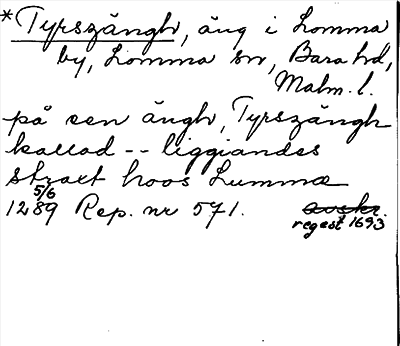 *Tyrszängh, äng i Lomma
by, Lomma sn, Bara hd,
Malm. l.
på een ängh, Tyrszängh
kallad -- liggiandes
straxt hoos Lumma
5/6
1289 Rep. nr 571. avskr.
regest 1693